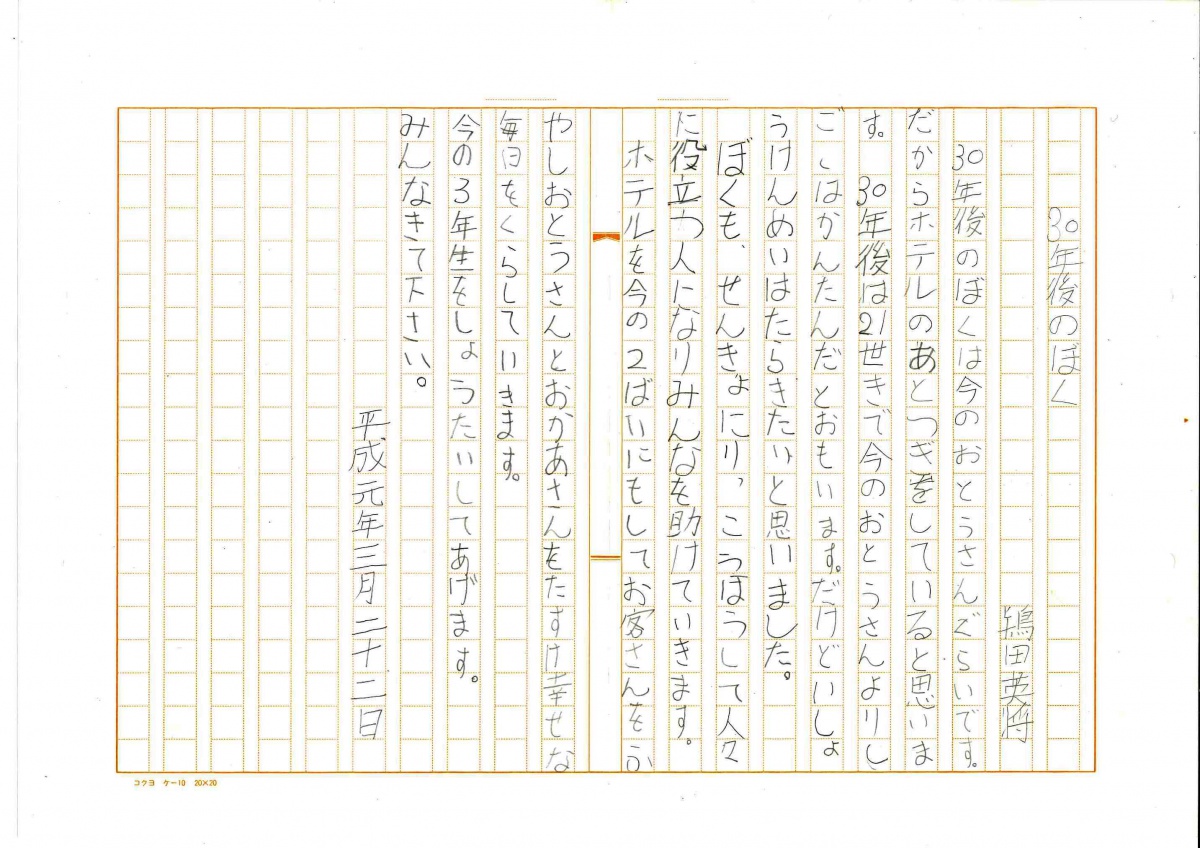 30年後のぼく
鴇田英将
30年後のぼくは今のおとうさんぐらいです。
だからホテルのあとつぎをしていると思いま
す。 30年後は21世きで今のおとうさんよりし
ごとはかんたんだとおもいます。だけどいしょ
うけんめいはたらきたいと思いました。
ぼくも、せんきょにり、こうほうして人々
に役立つ人になりみんなを助けていきます。
ホテルを今の2ばいにもしてお客さんをふ
やしおとうさんとおかあさんをたすけ幸せな
毎日をくらしていきます。
今の3年生をしょうたいしてあげます。
みんなきて下さい。
平成元年三月二十二日
コクヨ ケー10 20×20